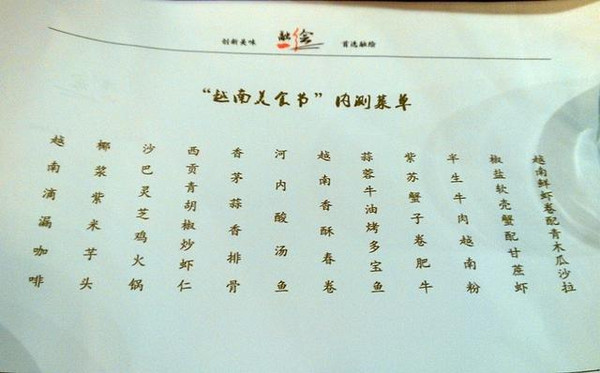 创新美味 融绘 首选融绘
“越南美食节”内测菜单
越南鲜虾卷配青木瓜沙拉
椒盐软壳蟹配甘蔗虾
半生牛肉越南粉
紫苏蟹子卷肥牛
蒜蓉牛油烤多宝鱼
越南香酥春卷
河内酸汤鱼
香茅蒜香排骨
西贡青胡椒炒虾仁
沙巴灵芝鸡火锅
椰浆紫米芋头
越南滴漏咖啡